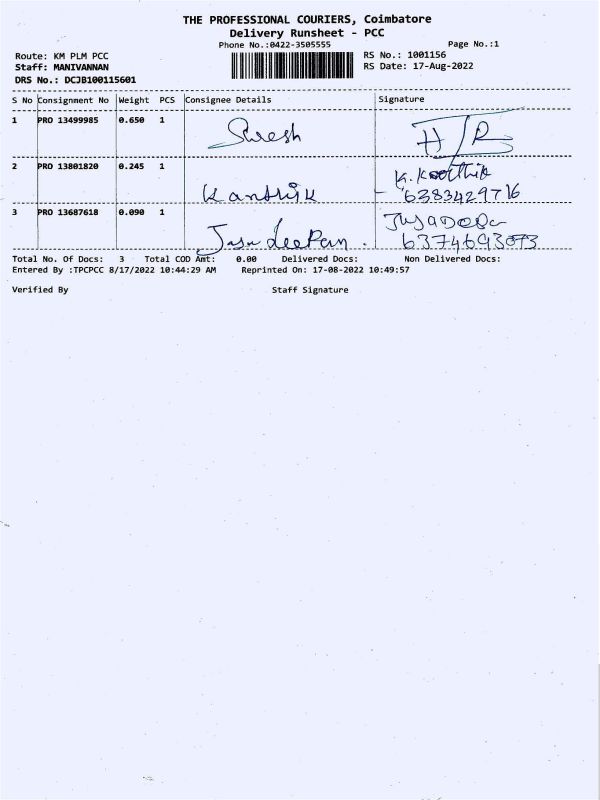 THE PROFESSIONAL COURIERS, Coimbatore
Delivery Runsheet - PCC
Phone No.:0422-3505555 Page No.:1
Route: KM PLM PCC RS No.: 1001156
Staff: MANIVANNAN RS Date: 17-Aug-2022
DRS No.: DCJB100115601
S No Consignment No Weight PCS Consignee Details Signature
1 PRO 13499985 0.650 1 Suresh
2 PRO 13801820 0.245 1 K. Karthik
Karthik 6383429716
3 PRO 13687618 0.090 1
6374693073
Total No. Of Docs: 3 Total COD Amt: 0.00 Delivered Docs: Non Delivered Docs:
Entered By :TPCPCC 8/17/2022 10:44:29 AM Reprinted On: 17-08-2022 10:49:57
Verified By Staff Signature